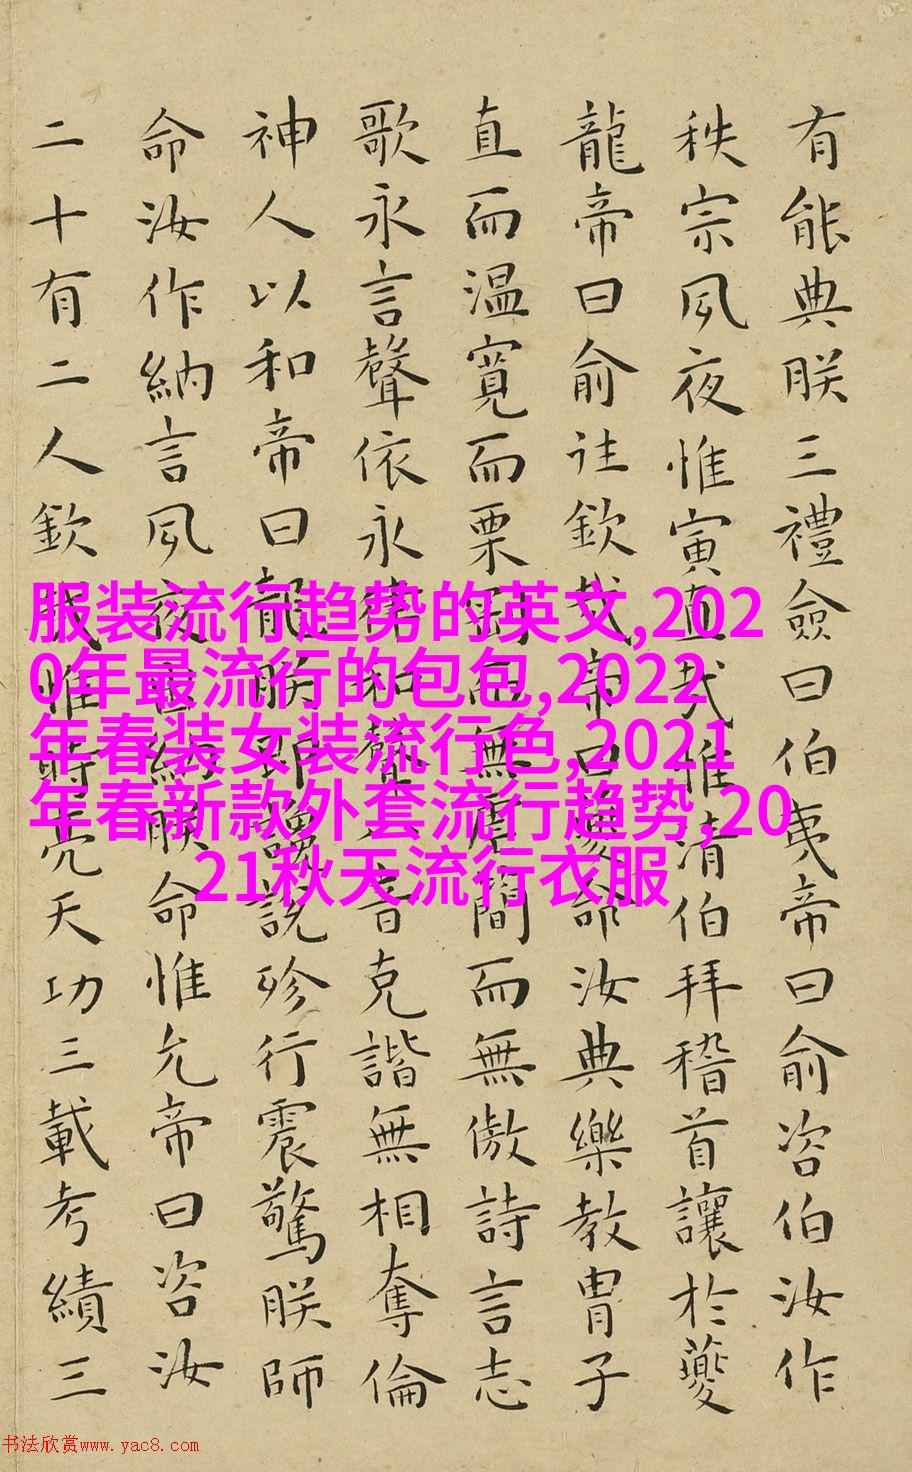 有能典朕三禮僉曰伯夷帝曰俞咨伯汝作
秩宗夙夜惟寅直哉惟清伯拜稽首讓於夔
龍帝曰俞往欽哉帝曰夔命汝典樂教胄子
直而温寬而栗剛而無虐簡而無傲詩言志
歌永言聲依永律和聲八音克諧無相奪倫
神人以和帝曰龍朕堲讒説殄行震驚朕師
命汝作納言夙夜出納朕命惟允帝曰咨汝
二十有二人欽哉惟時亮天功三載考績三
服装流行趋势的英文,202
0年最流行的包包,2022
年春装女装流行色,2021
年春新款外套流行趋势,20
21秋天流行衣服
书法欣赏www.yac8.com